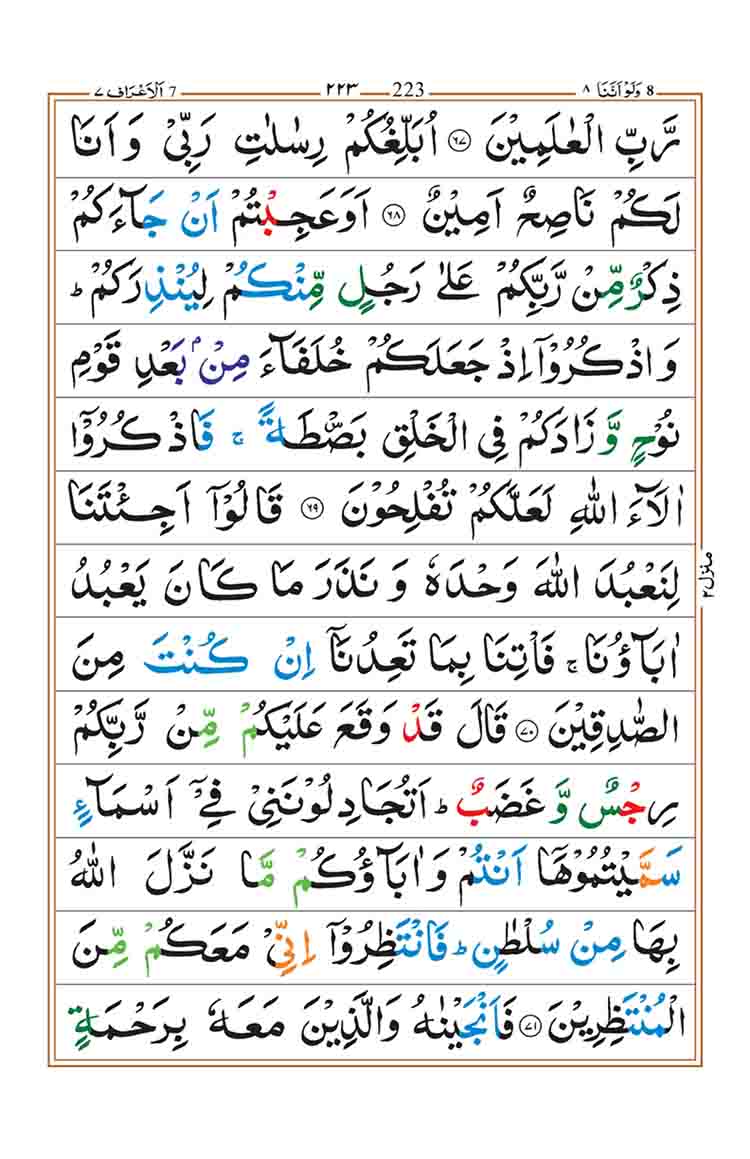 8 وَلَوْ اَنَّنَا ٨ 223 ٢٢٣ 7 اَلْاَعْرَاف ٧
رَّبِّ الْعٰلَمِيْنَ ۝٦٧ اُبَلِّغُكُمْ رِسٰلٰتِ رَبِّيْ وَ اَنَا
لَكُمْ نَاصِحٌ اَمِيْنٌ ۝٦٨ اَوَعَجِبْتُمْ اَنْ جَآءَكُمْ
ذِكْرٌ مِّنْ رَّبِّكُمْ عَلٰى رَجُلٍ مِّنْكُمْ لِيُنْذِرَكُمْ ؕ
وَ اذْكُرُوْۤا اِذْ جَعَلَكُمْ خُلَفَآءَ مِنْۢ بَعْدِ قَوْمِ
نُوْحٍ وَّ زَادَكُمْ فِي الْخَلْقِ بَصْۜطَةً ۚ فَاذْكُرُوْۤا
اٰلَآءَ اللّٰهِ لَعَلَّكُمْ تُفْلِحُوْنَ ۝٦٩ قَالُوْۤا اَجِئْتَنَا
لِنَعْبُدَ اللّٰهَ وَحْدَهٗ وَ نَذَرَ مَا كَانَ يَعْبُدُ
اٰبَآؤُنَا ۚ فَاْتِنَا بِمَا تَعِدُنَاۤ اِنْ كُنْتَ مِنَ
الصّٰدِقِيْنَ ۝٧٠ قَالَ قَدْ وَقَعَ عَلَيْكُمْ مِّنْ رَّبِّكُمْ
رِجْسٌ وَّ غَضَبٌ ؕ اَتُجَادِلُوْنَنِيْ فِيْۤ اَسْمَآءٍ
سَمَّيْتُمُوْهَاۤ اَنْتُمْ وَ اٰبَآؤُكُمْ مَّا نَزَّلَ اللّٰهُ
بِهَا مِنْ سُلْطٰنٍ ؕ فَانْتَظِرُوْۤا اِنِّيْ مَعَكُمْ مِّنَ
الْمُنْتَظِرِيْنَ ۝٧١ فَاَنْجَيْنٰهُ وَالَّذِيْنَ مَعَهٗ بِرَحْمَةٍ
منزل ٢